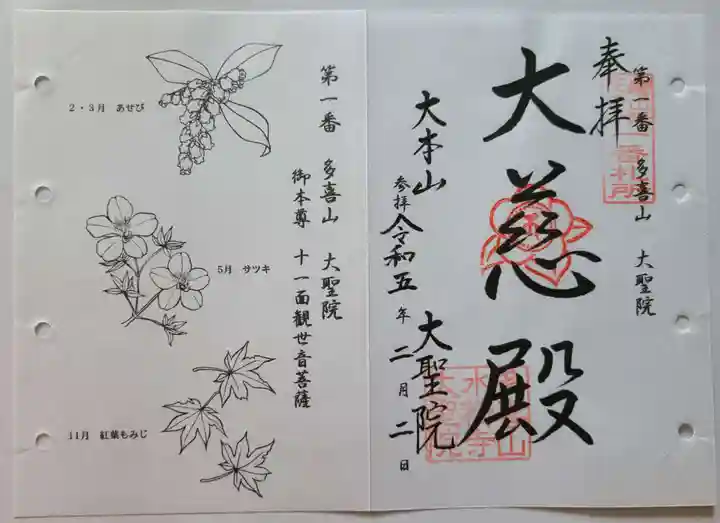 奉拝
第一番 多喜山 大聖院
大慈殿
大本山 大聖院
参拝 令和五年二月二日
第一番 多喜山 大聖院
御本尊 十一面観世音菩薩
2・3月 あせび
5月 サツキ
11月 紅葉もみじ